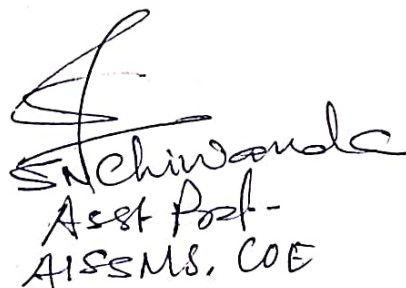 SNChiwande
Asst Prof-
AISSMS. COE